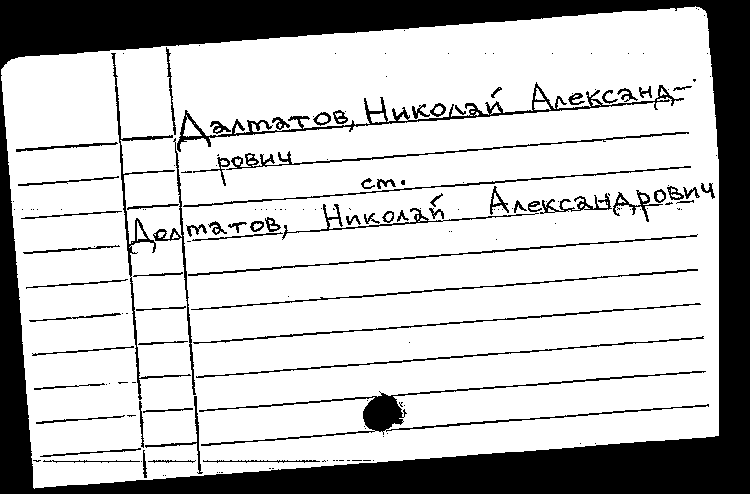 Далматов, Николай Александ-
рович
ст.
Долматов, Николай Александрович